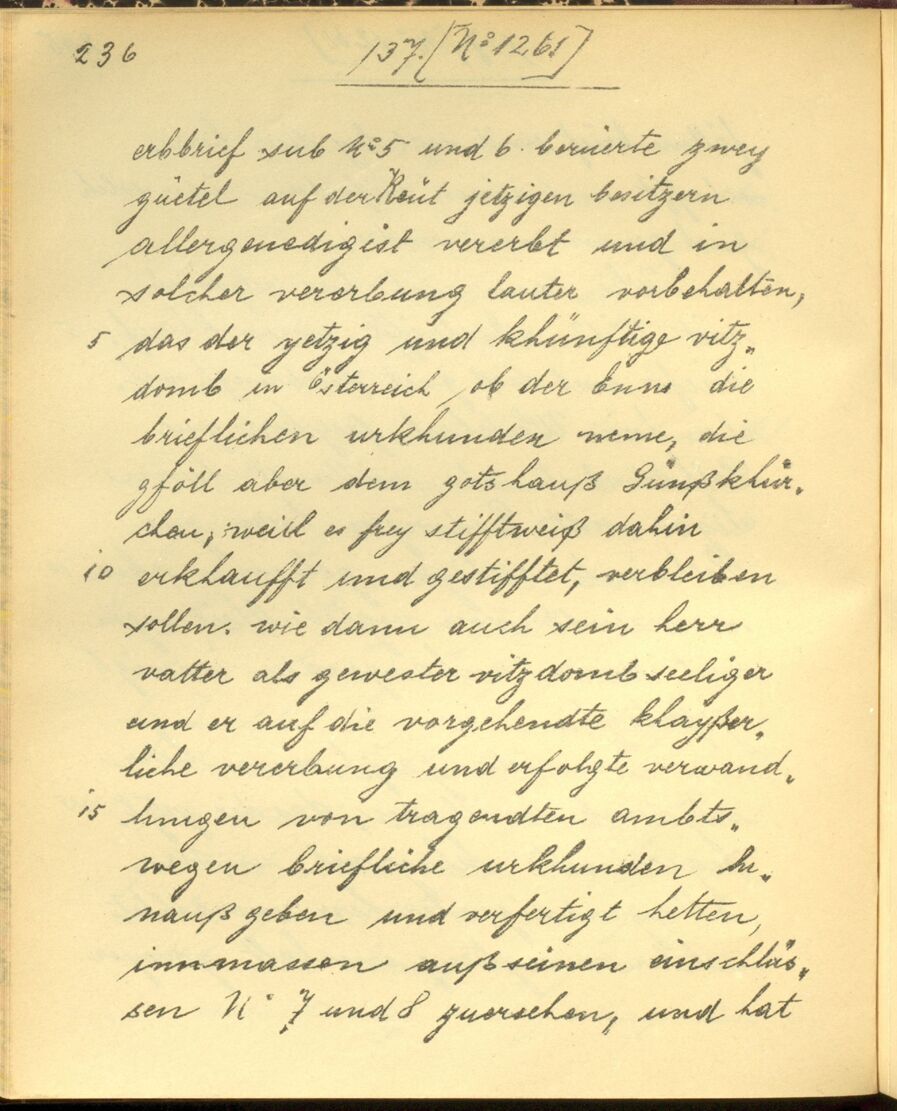 236
137. [No 1261]
erbbrief sub No 5 und 6 berüerte zwey
güetel auf der Reüt jetzigen besitzern
allergenedigist vererbt und in
solcher vererbung lauter vorbehalten,
5 das der yetzig und khünftige vitz„
domb in Österreich ob der Enns die
brieflichen urkhunden neme, die
gföll aber dem gotshauß Günßkhür„
chen, weill es frey stifftweiß dahin
10 erkhaufft und gestifftet, verbleiben
sollen. wie dann auch sein herr
vatter als gewester vitzdomb seeliger
und er auf die vorgehendte khayßer„
liche vererbung und erfolgte verwand„
15 lungen von tragendten ambts„
wegen briefliche urkhunden hi„
nauß geben und verfertigt hetten,
innmassen auß seinen einschlüs„
sen No 7 und 8 zuersehen, und hat